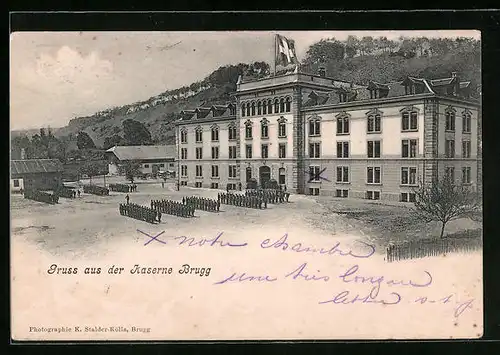 Gruss aus der Kaserne Brugg
x notre chambre
une très longue
lettre s.t.p.
Photographie K. Stalder-Kölla, Brugg